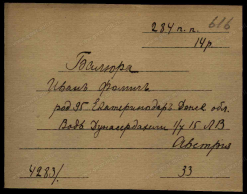 284 п.п. 616
14р
Балюра
Иванъ Фомичъ
род 95 Екатеринодаръ Донск обл.
Водв Дунасердахели 1/V 15 ЛВ
Австрия
4283/ 33